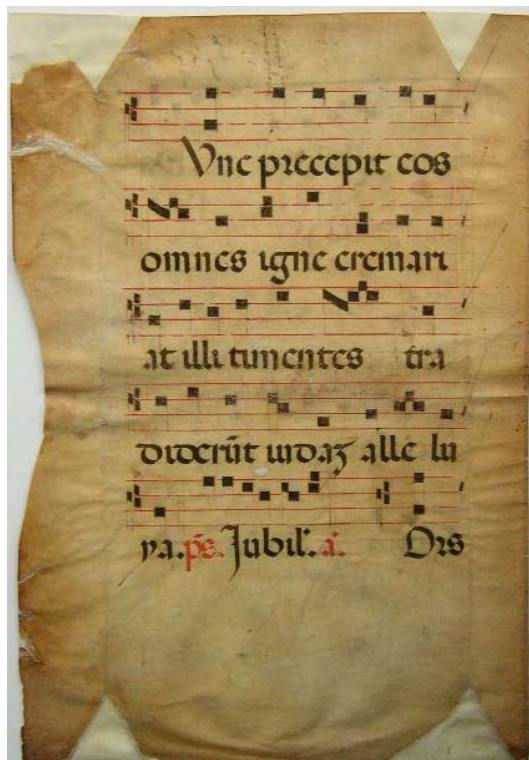 Unc precepit eos
omnes igne cremari
at illi timentes tra
diderūt iudaʒ alle lu
ya. ps. Jubil'. a. Ors